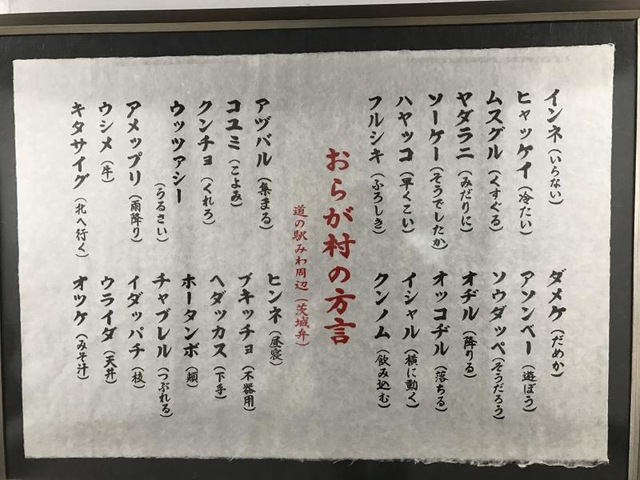 インネ(いらない)
ヒャッケイ(冷たい)
ムスグル(くすぐる)
ヤダラニ(みだりに)
ソーケー(そうでしたか)
ハヤッコ(早くこい)
フルシキ(ふろしき)
ダメケ(だめか)
アソンベー(遊ぼう)
ソウダッペ(そうだろう)
オヂル(降りる)
オッコヂル(落ちる)
イシャル(横に動く)
クンノム(飲み込む)
おらが村の方言
道の駅みわ周辺(茨城弁)
アヅバル(集まる)
コユミ(こよみ)
クンチョ(くれろ)
ウッツァシー(うるさい)
アメップリ(雨降り)
ウシメ(牛)
キタサイグ(北へ行く)
ヒンネ(昼寝)
ブキッチョ(不器用)
ヘダッカス(下手)
ホータンボ(頬)
チャブレル(つぶれる)
イダッパチ(枝)
ウライダ(天井)
オツケ(みそ汁)